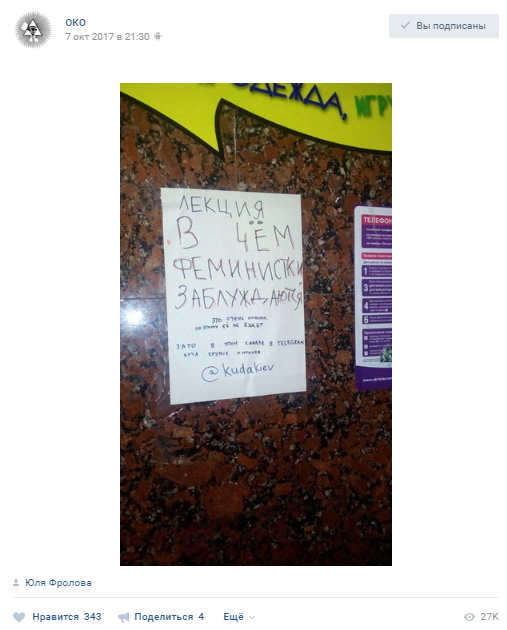 ОКО
7 окт 2017 в 21:30
Вы подписаны
ОДЕЖДА, ИГРУ
ЛЕКЦИЯ
В ЧЁМ
ФЕМИНИСТКИ
ЗАБЛУЖДАЮТСЯ
ЭТО ОЧЕНЬ
ПОЭТОМУ ЕЁ НЕ БУДЕТ
ЗАТО В ЭТОМ КАНАЛЕ В TELEGRAM
КУЧА КРУТЫХ
@kudakiev
ТЕЛЕФОН
1
3
4
6
Юля Фролова
Нравится 343
Поделиться 4
Ещё
27K